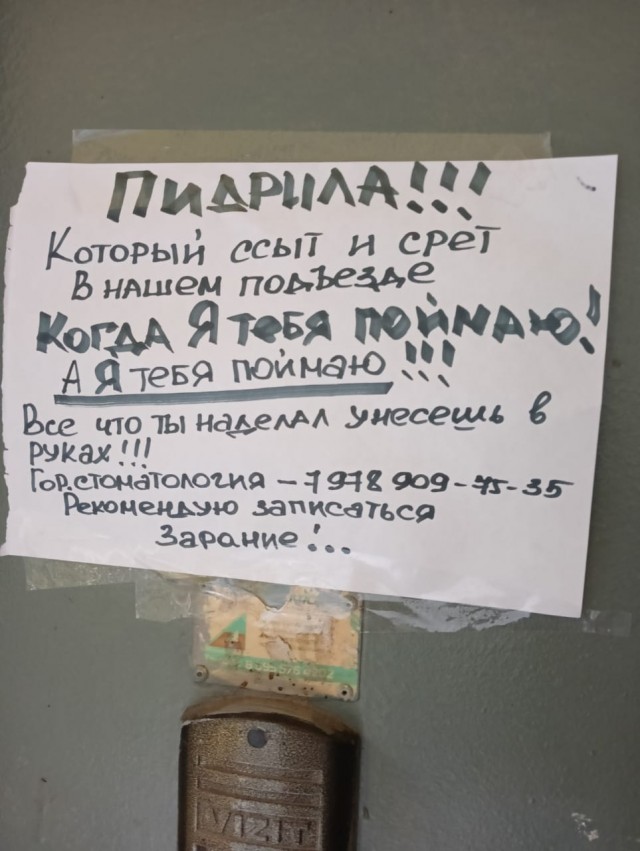 ПИДРИЛА!!!
Который ссыт и срет
в нашем подъезде
Когда Я тебя поймаю!
А Я тебя поймаю!!!
Все что ты наделал унесешь в
руках!!!
Гор.стоматология - 7 978 909-75-35
Рекомендую записаться
Зарание!...
VIZIT